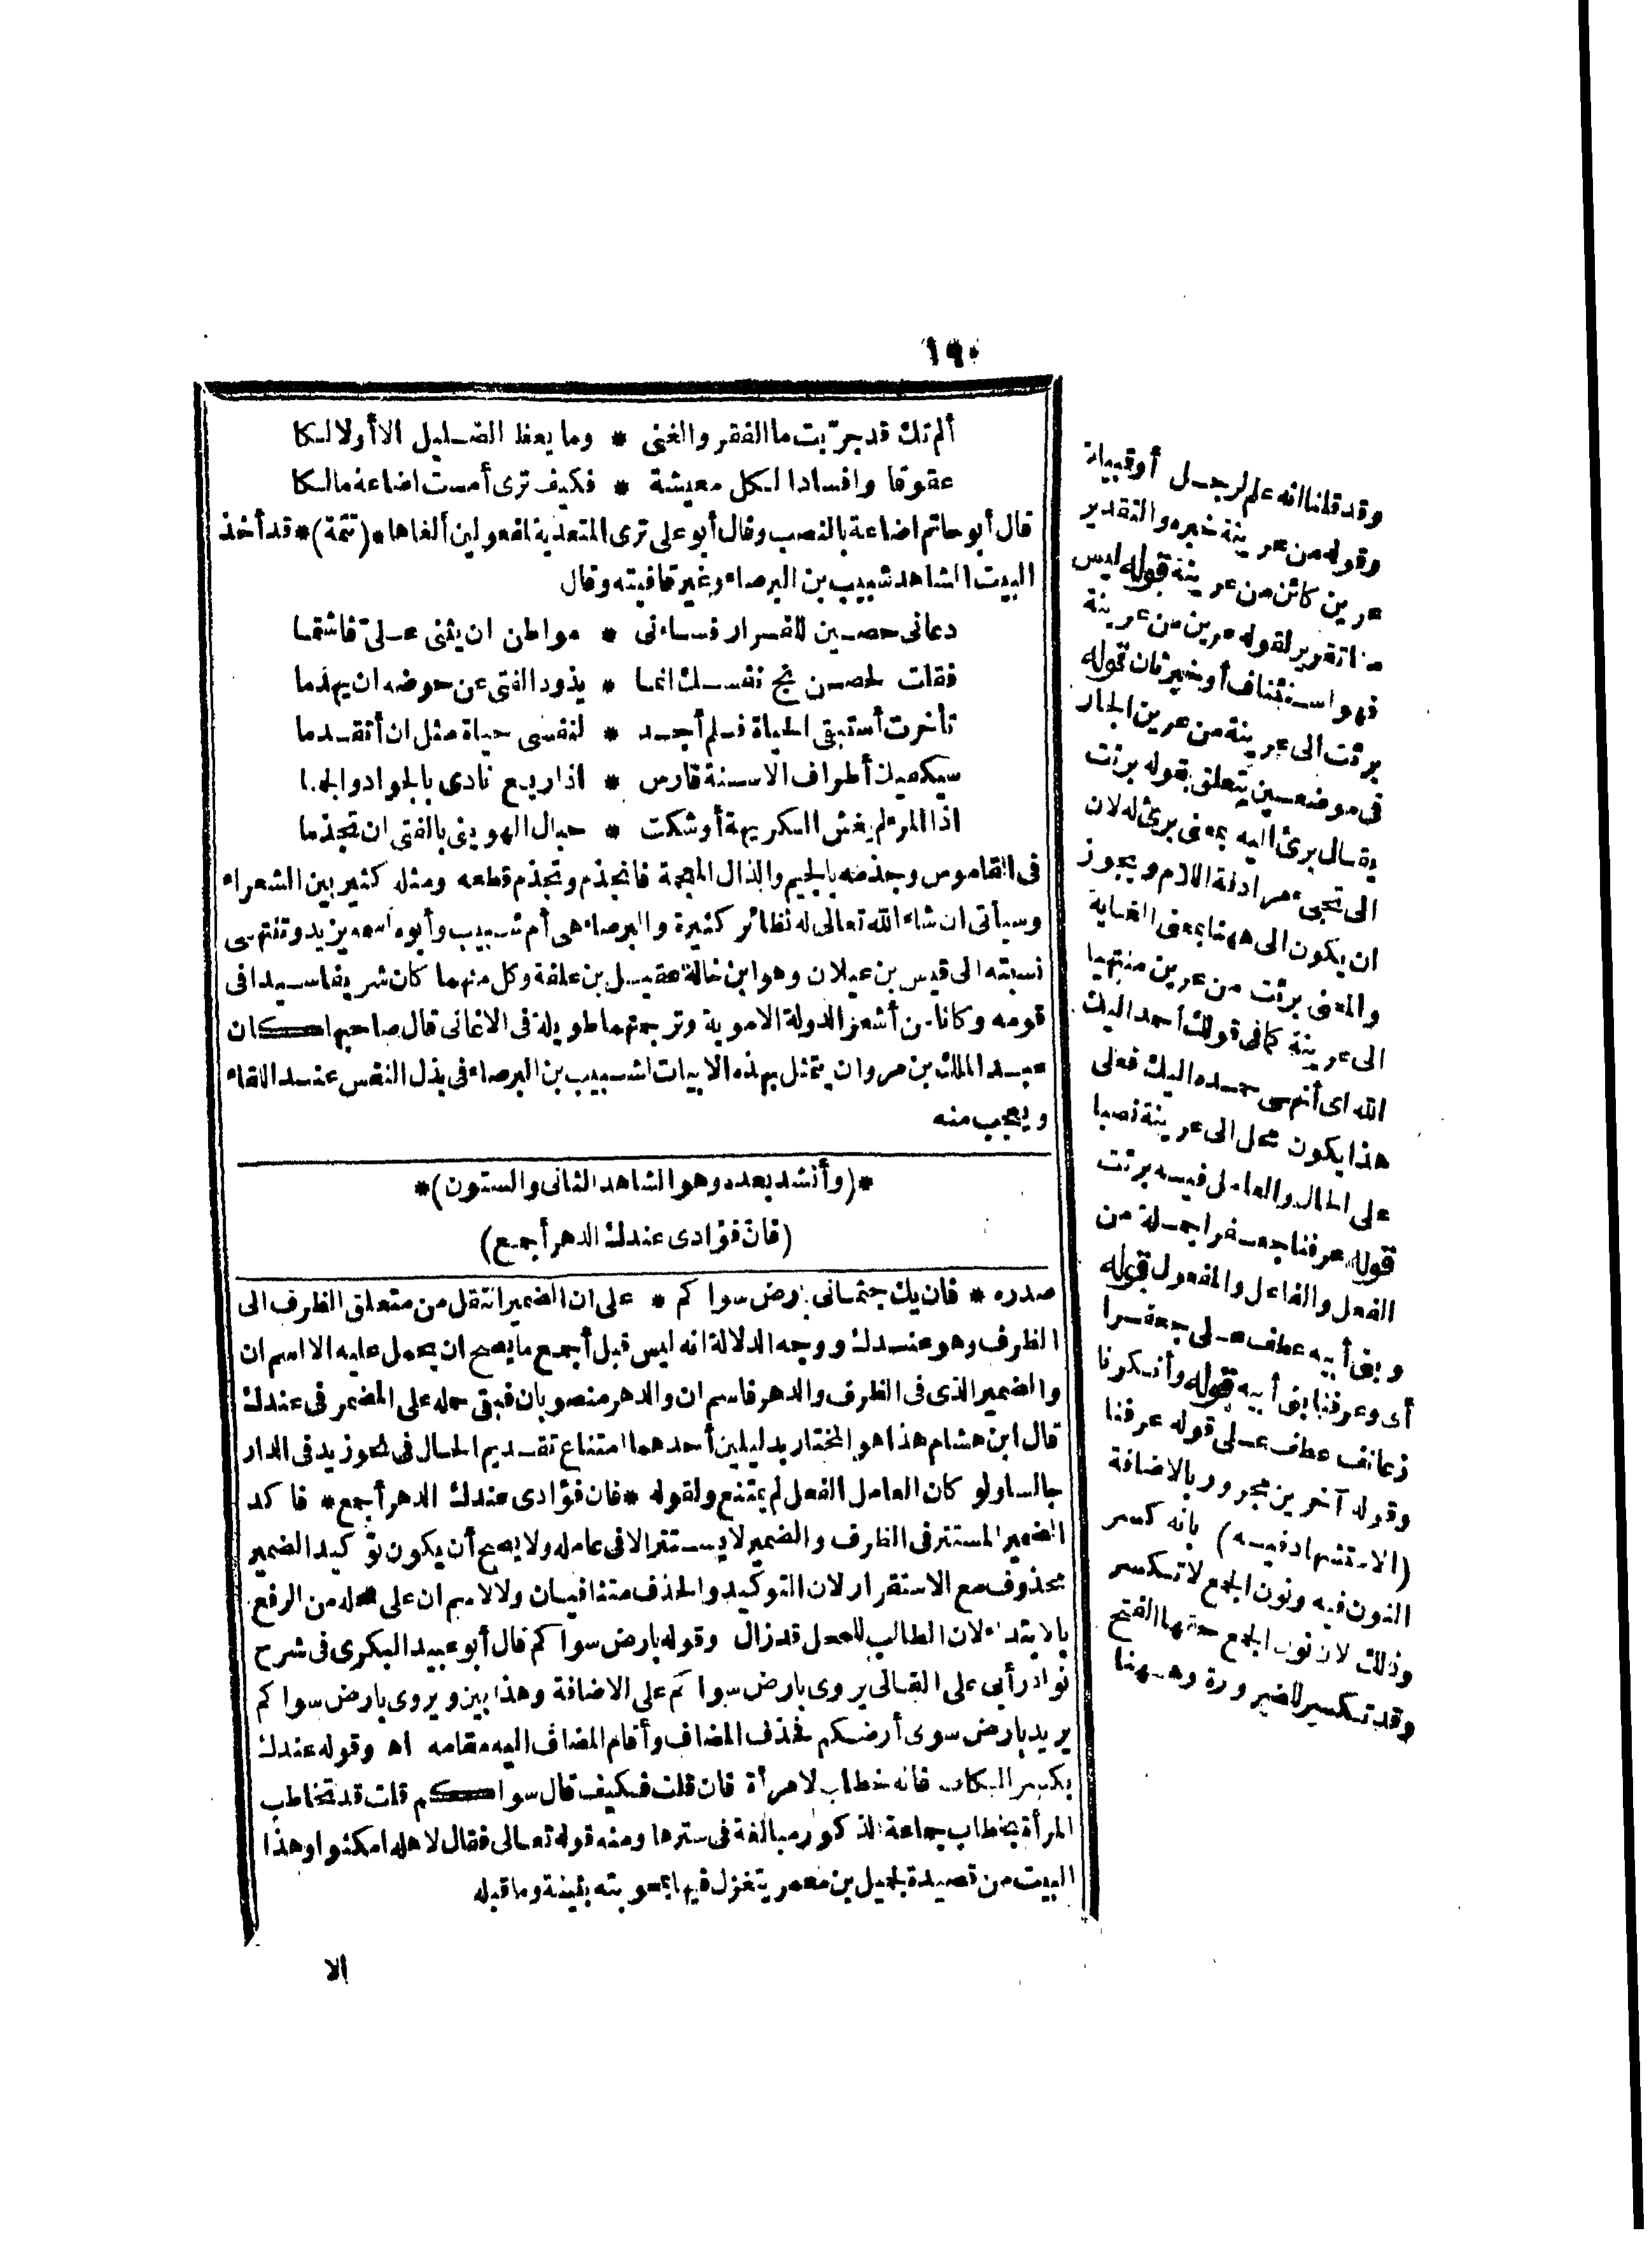 ١٩٠
ألم تك قد جرّبت ما الفقر والغنى * وما يعظ الضليل الا أولالكا
عقوقا وافسادا لكل معيشة * فكيف ترى أمست اضاعة مالكا
قال أبو حاتم اضاعة بالنصب وقال أبو على ترى المتعدية لمفعولين ألغاها *(تتمة)* قد أخذ
البيت الشاهد شبيب بن البرصاء وغير قافيته وقال
دعانى حصين للفرار فساءنى * مواطن ان يثنى علىّ فاشتما
فقلت لحصين نج نفسك انما * يذود الفتى عن حوضه ان يهدما
تأخرت أستبقى الحياة فلم أجد * لنفسى حياة مثل ان أتقدما
سيكفيك أطراف الاسنة فارس * اذا ريع نادى بالجواد والجما
اذا المرء لم يغش الكريهة أوشكت * حبال الهوينى بالفتى ان تجذما
فى القاموس وجذمه بالجيم والذال المعجمة فانجذم وتجذم قطعه ومثله كثير بين الشعراء
وسيأتى ان شاء الله تعالى له نظائر كثيرة والبرصاء هى أم شبيب وأبوه اسمه يزيد وتنتهى
نسبته الى قيس بن عيلان وهو ابن خالة عقيل بن علفة وكل منهما كان شريفا سيدا فى
قومه وكانا من أشعر الدولة الاموية وترجمتهما طويلة فى الاغانى قال صاحبها كان
عبد الملك بن مروان يتمثل بهذه الابيات لشبيب بن البرصاء فى بذل النفس عند اللقاء
ويعجب منه
*(وأنشد بعده وهو الشاهد الثانى والستون)*
(فانّ فؤادى عندك الدهر أجمع)
صدره * فان يك جثمانى بارض سواكم * على ان الضمير انتقل من متعلق الظرف الى
الظرف وهو عندك ووجه الدلالة انه ليس قبل أجمع ما يصح ان يحمل عليه الا اسم ان
والضمير الذى فى الظرف والدهر فاسم ان والدهر منصوبان فبقى حمله على المضمر فى عندك
قال ابن هشام هذا هو المختار بدليلين أحدهما امتناع تقديم الحال فى نحو زيد فى الدار
جالسا ولو كان العامل الفعل لم يمتنع ولقوله * فان فؤادى عندك الدهر أجمع * فاكد
الضمير المستتر فى الظرف والضمير لا يستتر الا فى عامله ولا يصح أن يكون توكيدا لضمير
محذوف مع الاستقرار لان التوكيد والحذف متنافيان ولا لاسم ان على محله من الرفع
بالابتداء لان الطالب للمحل قد زال وقوله بارض سواكم قال أبو عبيد البكرى فى شرح
نوادر أبى على القالى يروى بارض سواكم على الاضافة وهذا بين ويروى بارض سواكم
يريد بارض سوى أرضكم فحذف المضاف وأقام المضاف اليه مقامه اه وقوله عندك
بكسر الكاف فانه خطاب لامرأة فان قلت فكيف قال سواكم قلت قد تخاطب
المرأة بخطاب جماعة الذكور مبالغة فى سترها ومنه قوله تعالى فقال لاهله امكثوا وهذا
البيت من قصيدة لجميل بن معمر يتغزل فيها بمحبوبته بثينة وما قبله
الا
وقد قلنا انه علم لرجل أو قبيلة
وقوله من عرينة خبره والتقدير
عرين كائن من عرينة قوله ليس
منا تقرير لقوله عرين من عرينة
فهو استئناف أو خبر ثان قوله
برئت الى عرينة من عرين الجار
فى موضعين يتعلق بقوله برئت
يقال برئ اليه بمعنى برئ له لان
الى تجىء مرادفة اللام ويجوز
ان يكون الى ههنا بمعنى الغاية
والمعنى برئت من عرين منتهيا
الى عرينة كما فى قولك أحمد اليك
الله اى أنهى حمده اليك فعلى
هذا يكون محل الى عرينة نصبا
على الحال والعامل فيه برئت
قوله عرفنا جعفرا جملة من
الفعل والفاعل والمفعول قوله
وبنى أبيه عطف على جعفرا
أى وعرفنا بنى أبيه قوله وأنكرنا
زعانف عطف على قوله عرفنا
وقوله آخرين مجرور بالاضافة
(الاستشهاد فيه) بانه كسر
النون فيه ونون الجمع لا تكسر
وذلك لان نون الجمع حقها الفتح
وقد تكسر للضرورة وههنا